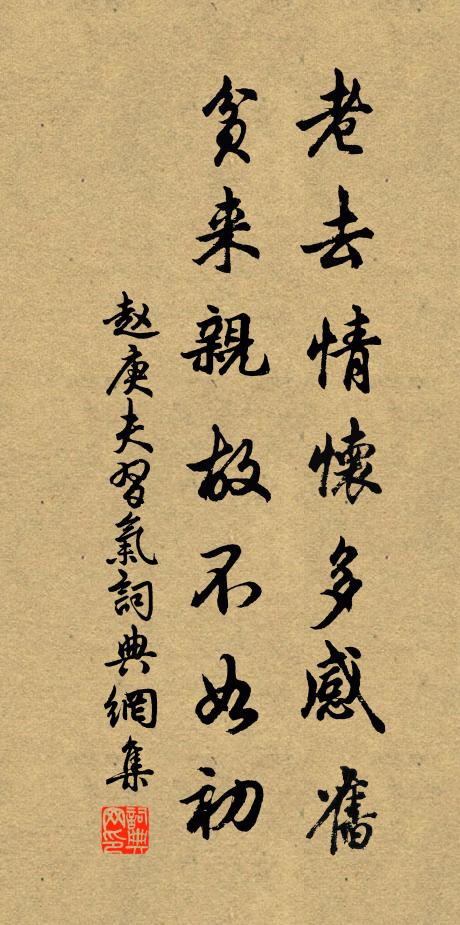 老去情懷多感舊
貧来親故不如初
赵庚夫習氣詞典網集
詞典网印